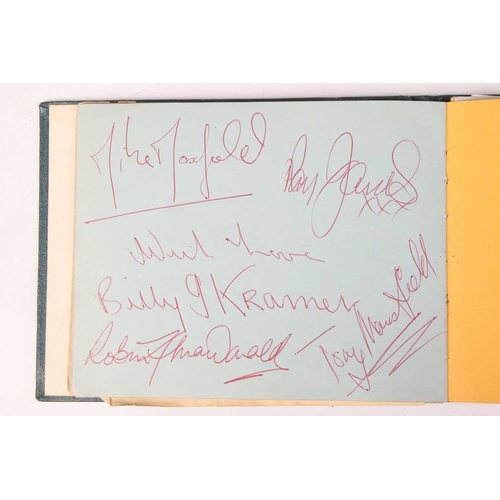 Mike Maxfield
Ray Jones xxx
With Love
Billy J Kramer
Robin MacDonald
Tony Mansfield